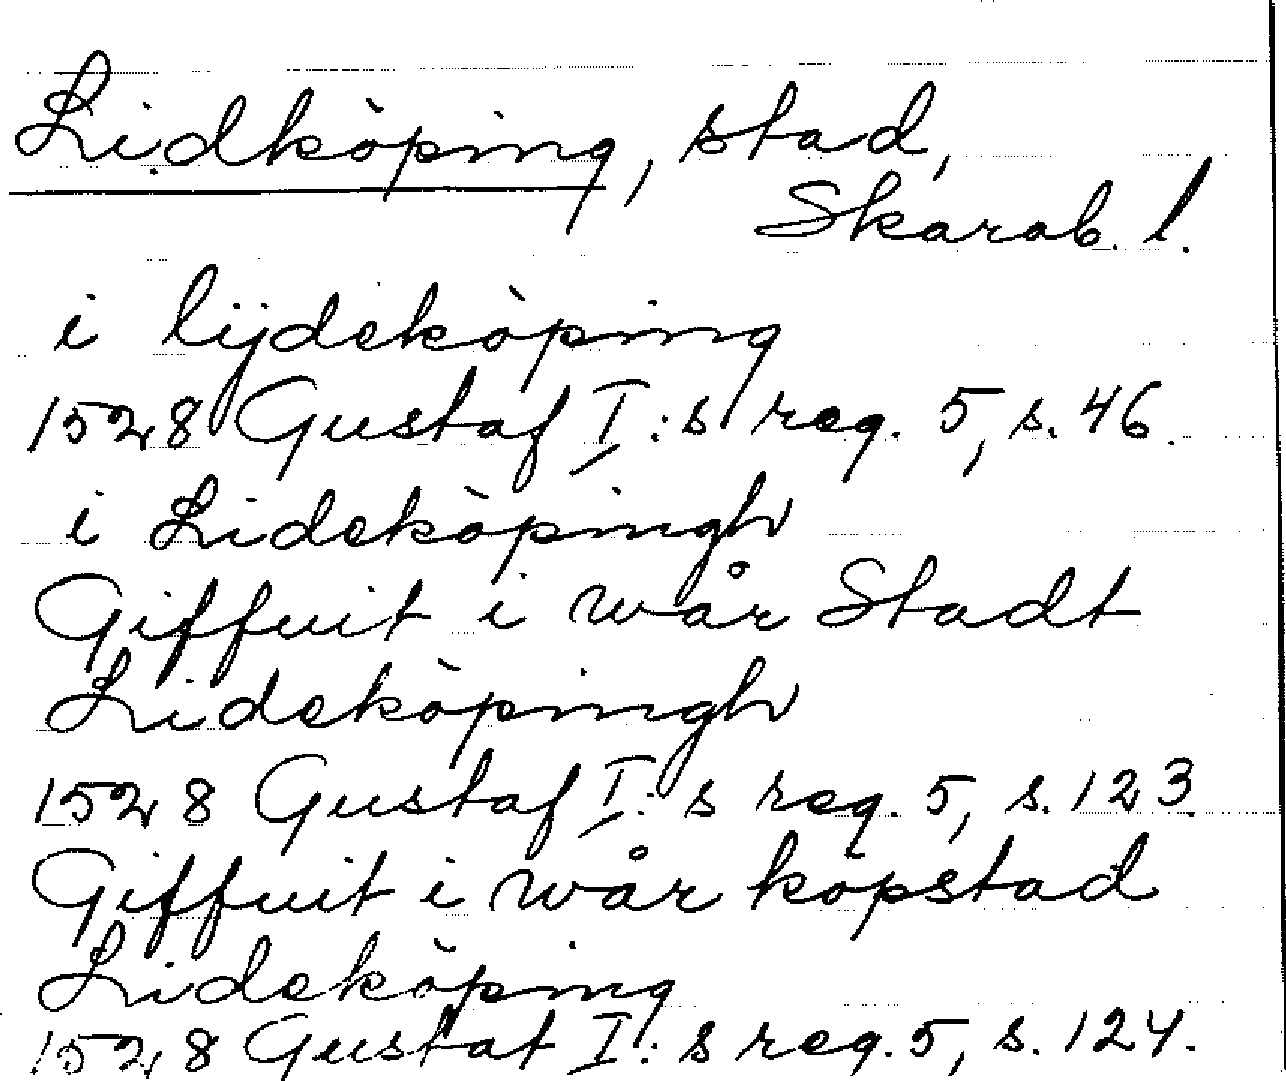 Lidköping, stad,
Skarab. l.
i lijdeköping
1528 Gustaf I:s reg. 5, s. 46.
i Lideköpingh
Giffuit i wår Stadt
Lideköpingh
1528 Gustaf I:s reg. 5, s. 123.
Giffuit i wår köpstad
Lideköping
1528 Gustaf I:s reg. 5, s. 124.